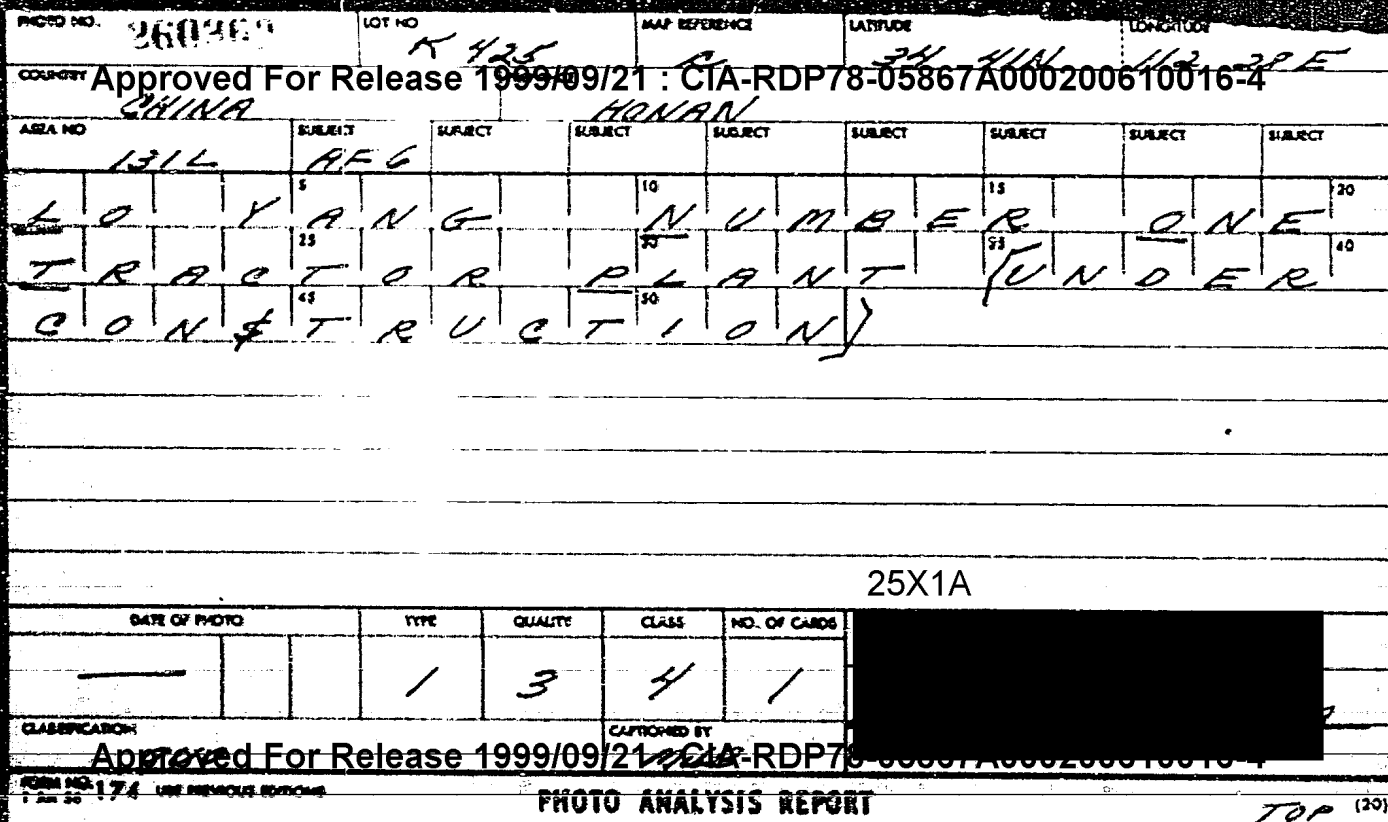 PHOTO NO. 260369 LOT NO K 425 MAP REFERENCE C LATITUDE 34 41N LONGITUDE 112 28 E
COUNTRY
Approved For Release 1999/09/21 : CIA-RDP78-05867A000200610016-4
CHINA HONAN
AREA NO SUBJECT SUBJECT SUBJECT SUBJECT SUBJECT SUBJECT SUBJECT SUBJECT
131L AF6
5 10 15 20
LO YANG NUMBER ONE
25 30 35 40
TRACTOR PLANT (UNDER
45 50
CON$TRUCTION)
25X1A
DATE OF PHOTO TYPE QUALITY CLASS NO. OF CARDS
— 1 3 4 1
CLASSIFICATION CAPTIONED BY
Approved For Release 1999/09/21 : CIA-RDP78-05867A000200610016-4
FORM NO. 174 USE PREVIOUS EDITIONS
PHOTO ANALYSIS REPORT
TOP (20)